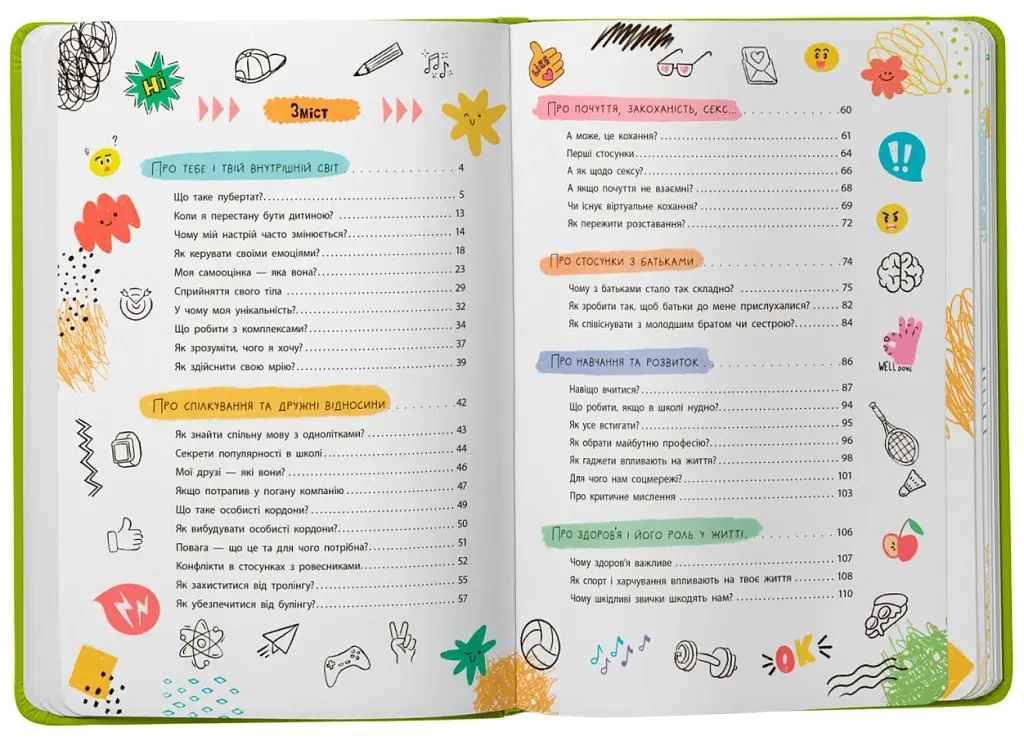 Hi
Зміст
Про тебе і твій внутрішній світ . . . . . . . . . . 4
Що таке пубертат? 5
Коли я перестану бути дитиною? 13
Чому мій настрій часто змінюється? 14
Як керувати своїми емоціями? 18
Моя самооцінка — яка вона? 23
Сприйняття свого тіла 29
У чому моя унікальність? 32
Що робити з комплексами? 34
Як зрозуміти, чого я хочу? 37
Як здійснити свою мрію? 39
Про спілкування та дружні відносини . . . . . . . 42
Як знайти спільну мову з однолітками? 43
Секрети популярності в школі 44
Мої друзі — які вони? 46
Якщо потрапив у погану компанію 47
Що таке особисті кордони? 49
Як вибудувати особисті кордони? 50
Повага — що це та для чого потрібна? 51
Конфлікти в стосунках з ровесниками 52
Як захиститися від тролінгу? 55
Як убезпечитися від булінгу? 57
Про почуття, закоханість, секс... . . . . . . . . . . 60
А може, це кохання? 61
Перші стосунки 64
А як щодо сексу? 66
А якщо почуття не взаємні? 68
Чи існує віртуальне кохання? 69
Як пережити розставання? 72
Про стосунки з батьками . . . . . . . . . . 74
Чому з батьками стало так складно? 75
Як зробити так, щоб батьки до мене прислухалися? 82
Як співіснувати з молодшим братом чи сестрою? 84
Про навчання та розвиток . . . . . . . . . . 86
Навіщо вчитися? 87
Що робити, якщо в школі нудно? 94
Як усе встигати? 95
Як обрати майбутню професію? 96
Як гаджети впливають на життя? 98
Для чого нам соцмережі? 101
Про критичне мислення 103
WELL DONE
Про здоров'я і його роль у житті . . . . . . . . 106
Чому здоров'я важливе 107
Як спорт і харчування впливають на твоє життя 108
Чому шкідливі звички шкодять нам? 110
OK